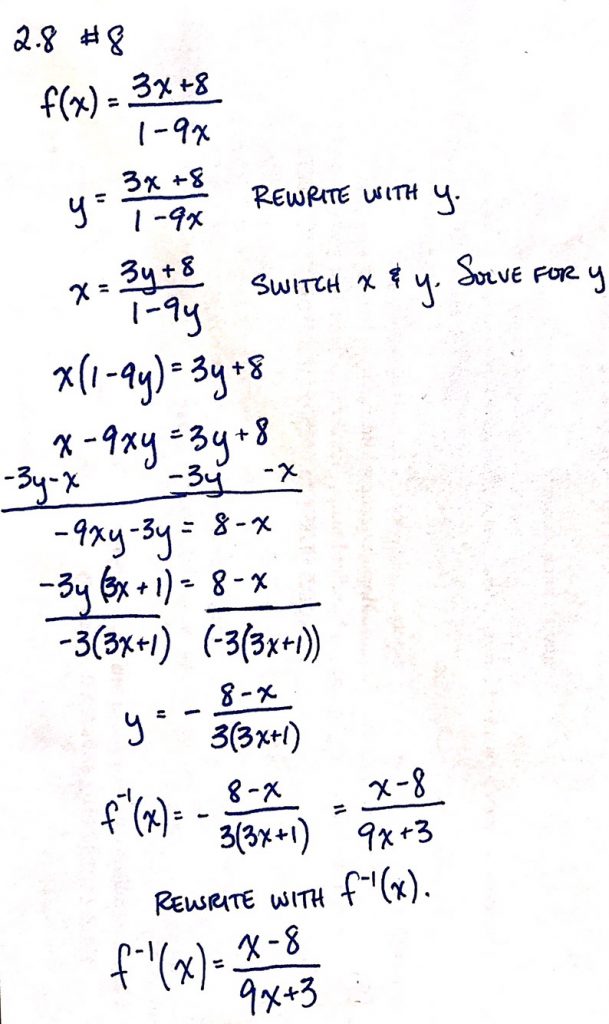 2.8 #8
f(x) = (3x+8)/(1-9x)
y = (3x+8)/(1-9x) REWRITE WITH y.
x = (3y+8)/(1-9y) SWITCH x & y. SOLVE FOR y
x(1-9y) = 3y+8
x - 9xy = 3y+8
-3y-x -3y -x
-9xy-3y = 8-x
-3y(3x+1) = 8-x
-3(3x+1) (-3(3x+1))
y = - (8-x)/(3(3x+1))
f⁻¹(x) = - (8-x)/(3(3x+1)) = (x-8)/(9x+3)
REWRITE WITH f⁻¹(x).
f⁻¹(x) = (x-8)/(9x+3)